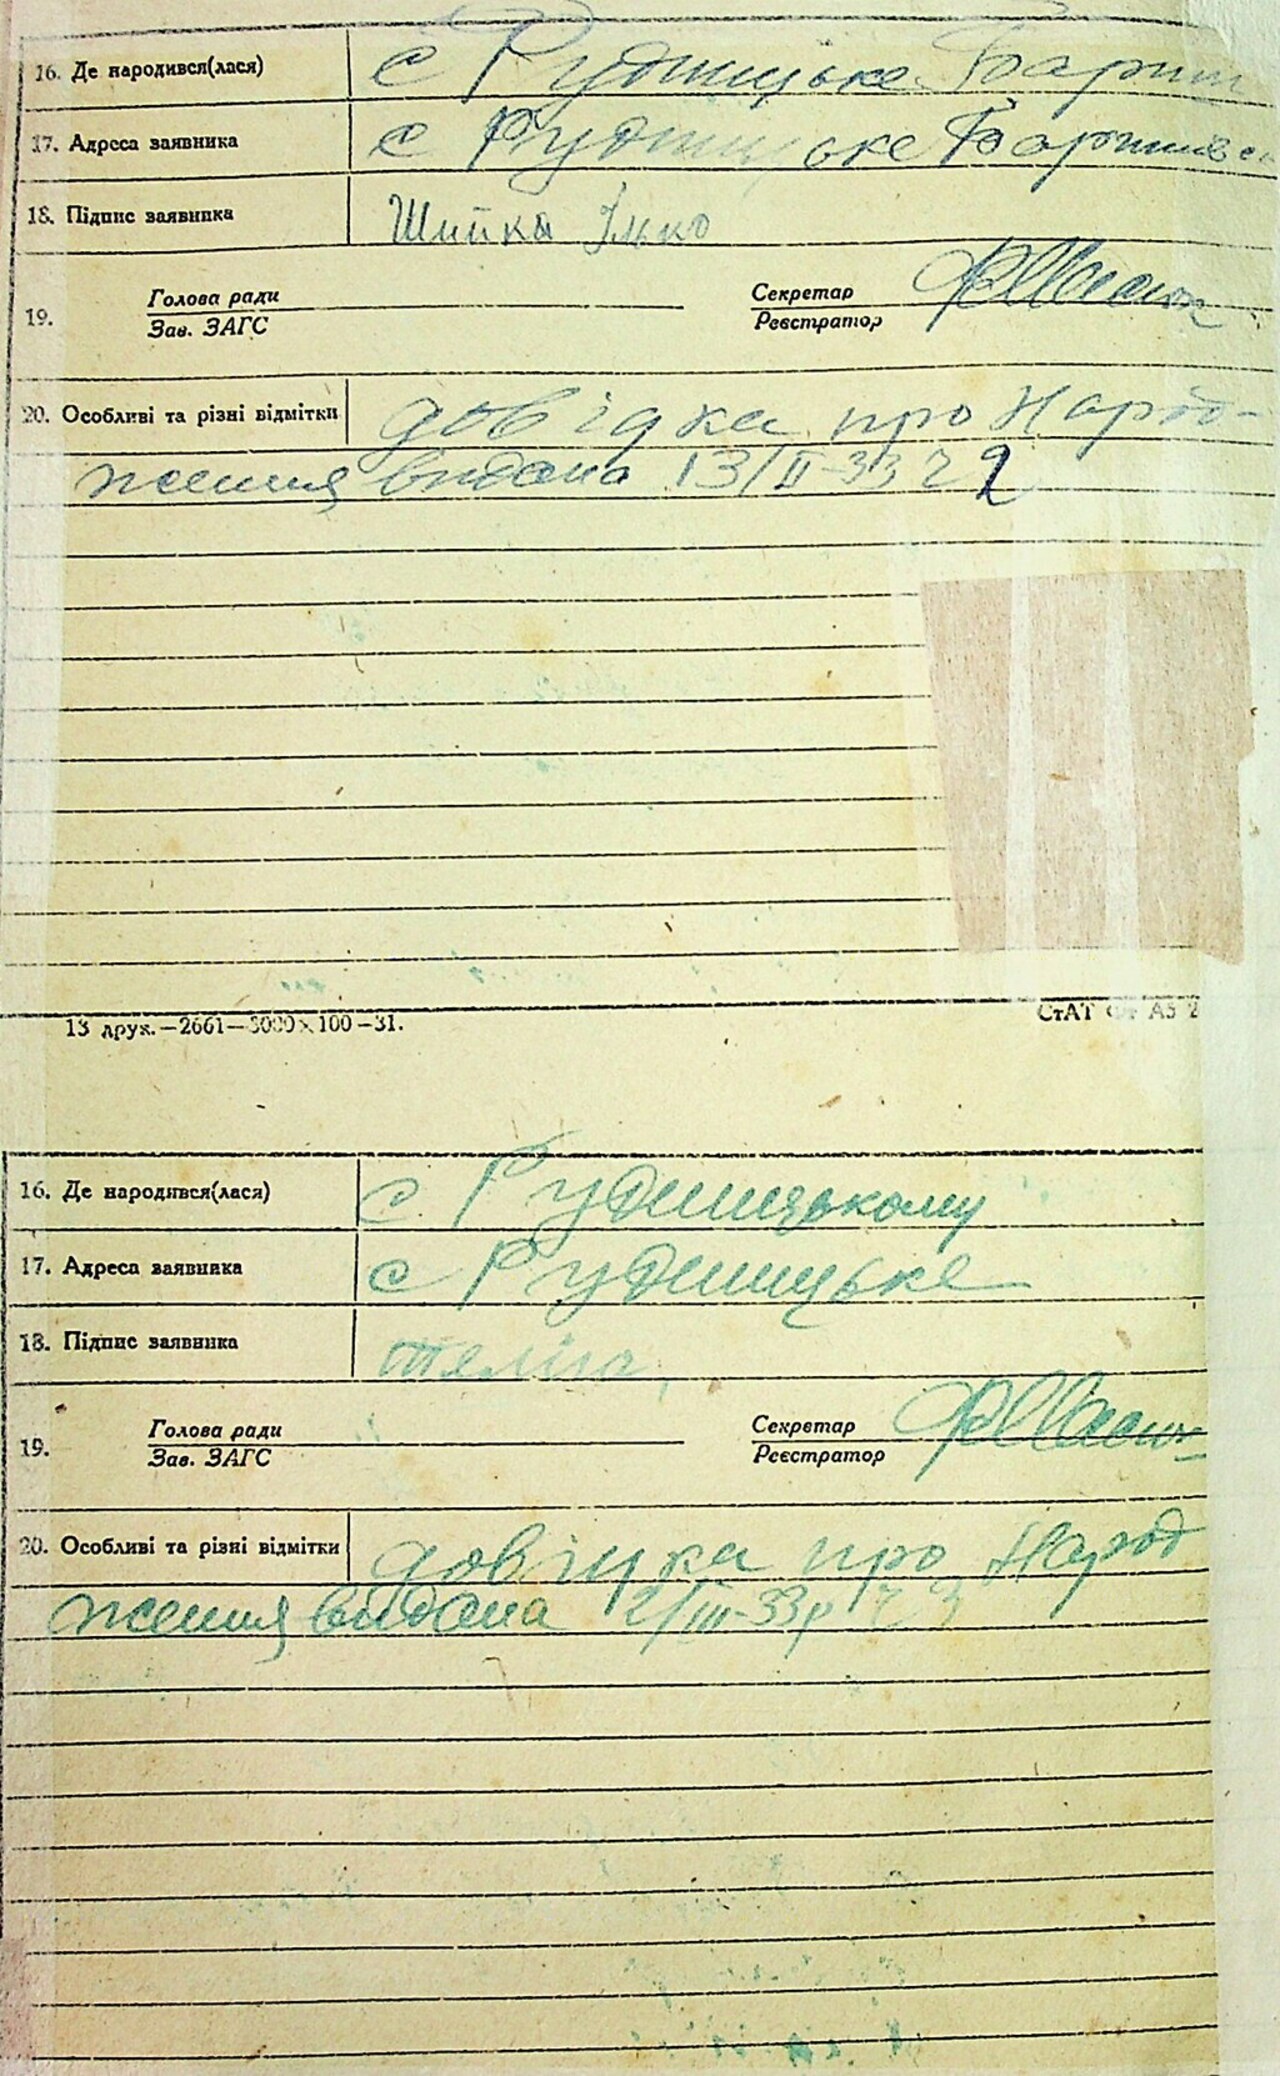 16. Де народився(лася) с Рудницьке Бариш
17. Адреса заявника с Рудницьке Баришівс
18. Підпис заявника Шийка Ілько
Голова ради Секретар
19. Зав. ЗАГС Реєстратор
20. Особливі та різні відмітки довідка про народ-
ження видана 13/II-33
13 друк.-2661-5000×100-31. СтАТ
16. Де народився(лася) с. Рудницькому
17. Адреса заявника с Рудницьке
18. Підпис заявника Теліга
Голова ради Секретар
19. Зав. ЗАГС Реєстратор
20. Особливі та різні відмітки довідка про народ
ження видана 2/III-33р